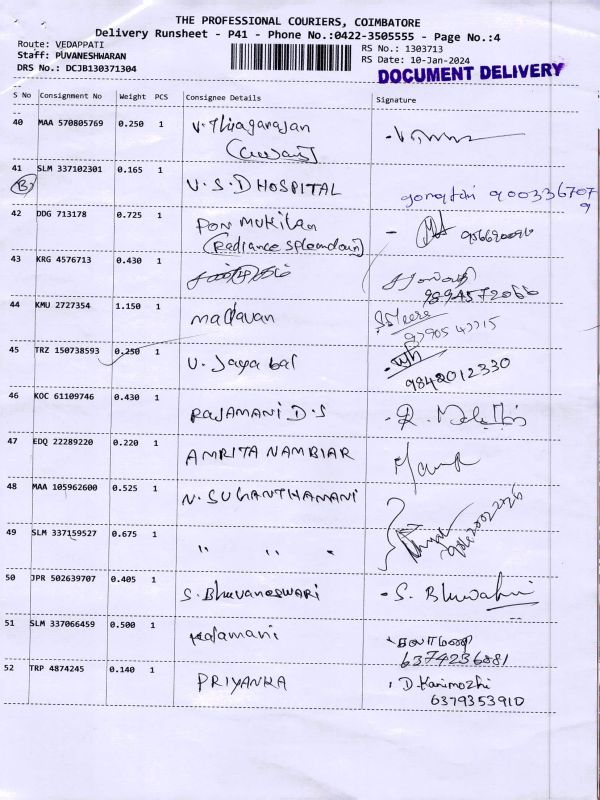 THE PROFESSIONAL COURIERS, COIMBATORE
Delivery Runsheet - P41 - Phone No.:0422-3505555 - Page No.:4
Route: VEDAPPATI
RS No.: 1303713
Staff: PUVANESHWARAN
RS Date: 10-Jan-2024
DRS No.: DCJB130371304
DOCUMENT DELIVERY
S No Consignment No Weight PCS Consignee Details Signature
40 MAA 570805769 0.250 1 V. Thiagarajan
41 SLM 337102301 0.165 1 V. S. D HOSPITAL
B
9003367079
42 DDG 713178 0.725 1 PON MUKILAN
(Radiance Splendour)
43 KRG 4576713 0.430 1
9894572066
44 KMU 2727354 1.150 1 madavan
45 TRZ 150738593 0.250 1 V. Jaya bal
9842012330
46 KOC 61109746 0.430 1 RAJAMANI D.S
47 EDQ 22289220 0.220 1 AMRITA NAMBIAR
48 MAA 105962600 0.525 1 N. SUGANTHAMANI
49 SLM 337159527 0.675 1 " " "
50 JPR 502639707 0.405 1 S. Bhuvaneswari
51 SLM 337066459 0.500 1 Kalamani கலாமணி
6374236881
52 TRP 4874245 0.140 1 PRIYANKA D. Kanimozhi
6379353910